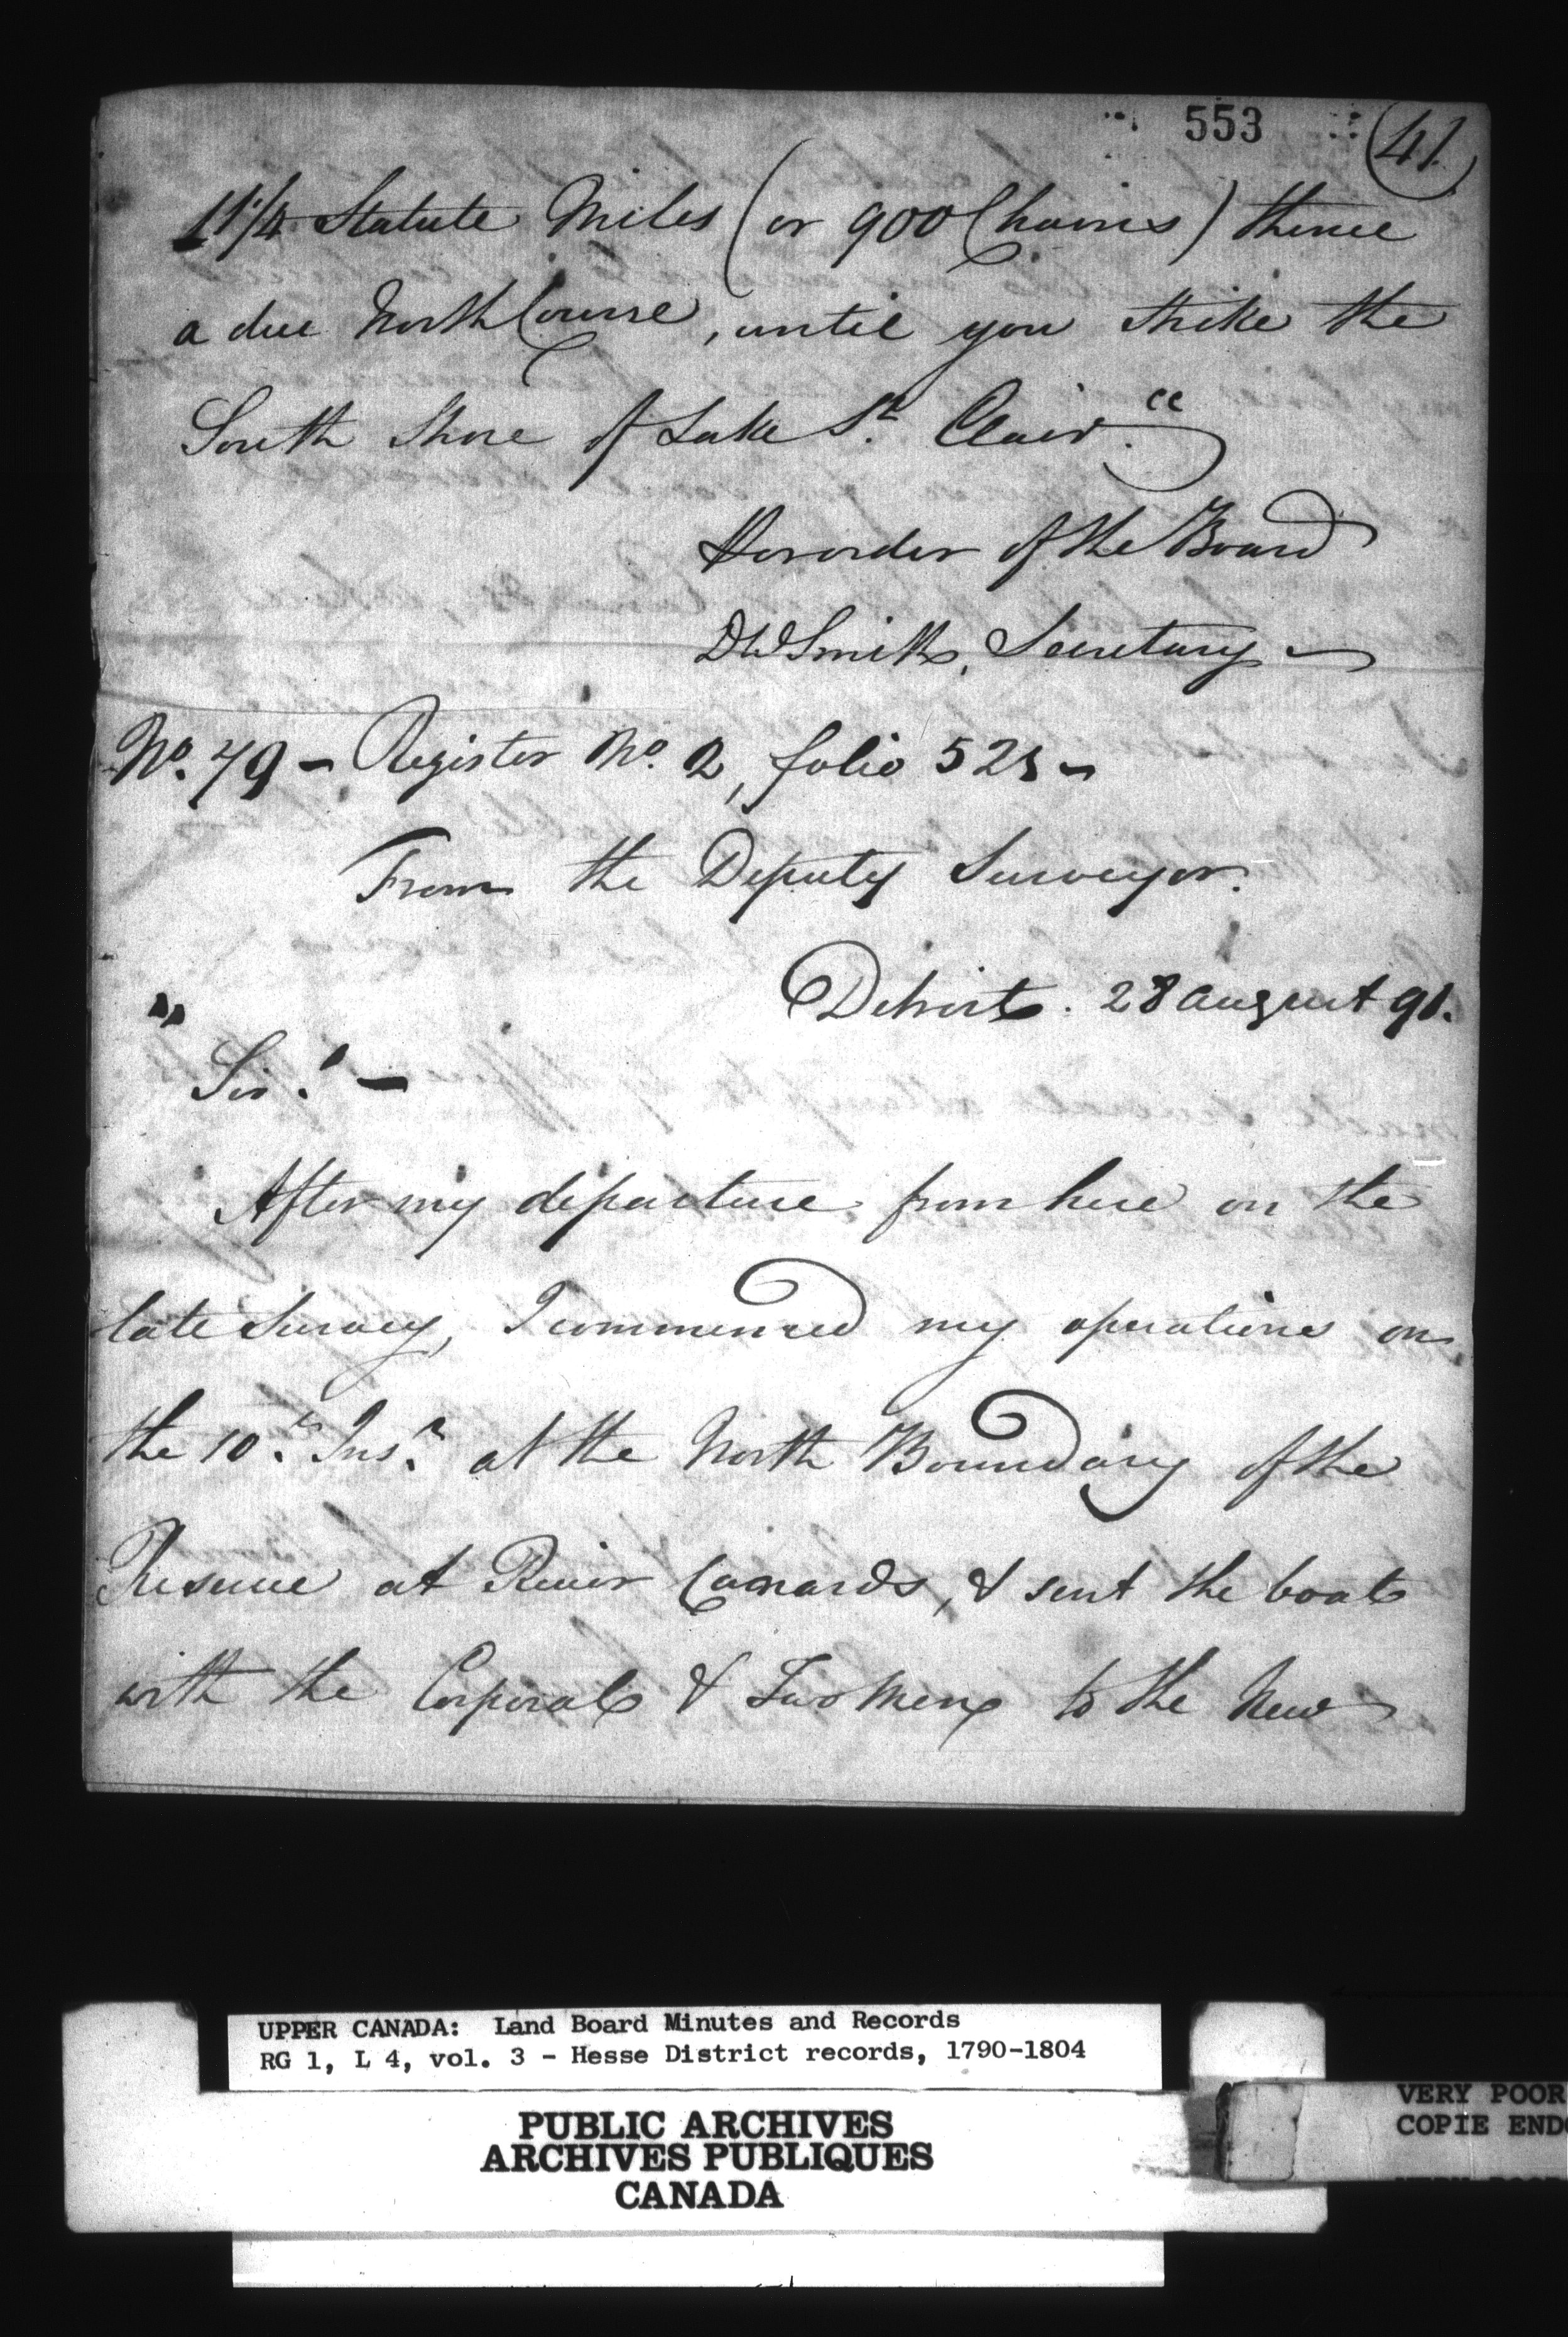 553
41.
11 1/4 Statute Miles (or 900 Chains) thence
a due North Course, until you strike the
South Shore of Lake St. Clair."
By order of the Board
DW Smith, Secretary
No. 79 - Register No. 2, folio 525 -
From the Deputy Surveyor.
Detroit. 28 August 91.
"
Sir! -
After my departure from here on the
late Survey, I commenced my operations on
the 10th Inst. at the North Boundary of the
Reserve at River Canards, & sent the boat
with the Corporal & Two Men to the New
UPPER CANADA: Land Board Minutes and Records
RG 1, L 4, vol. 3 - Hesse District records, 1790-1804
PUBLIC ARCHIVES
ARCHIVES PUBLIQUES
CANADA
VERY POOR
COPIE END